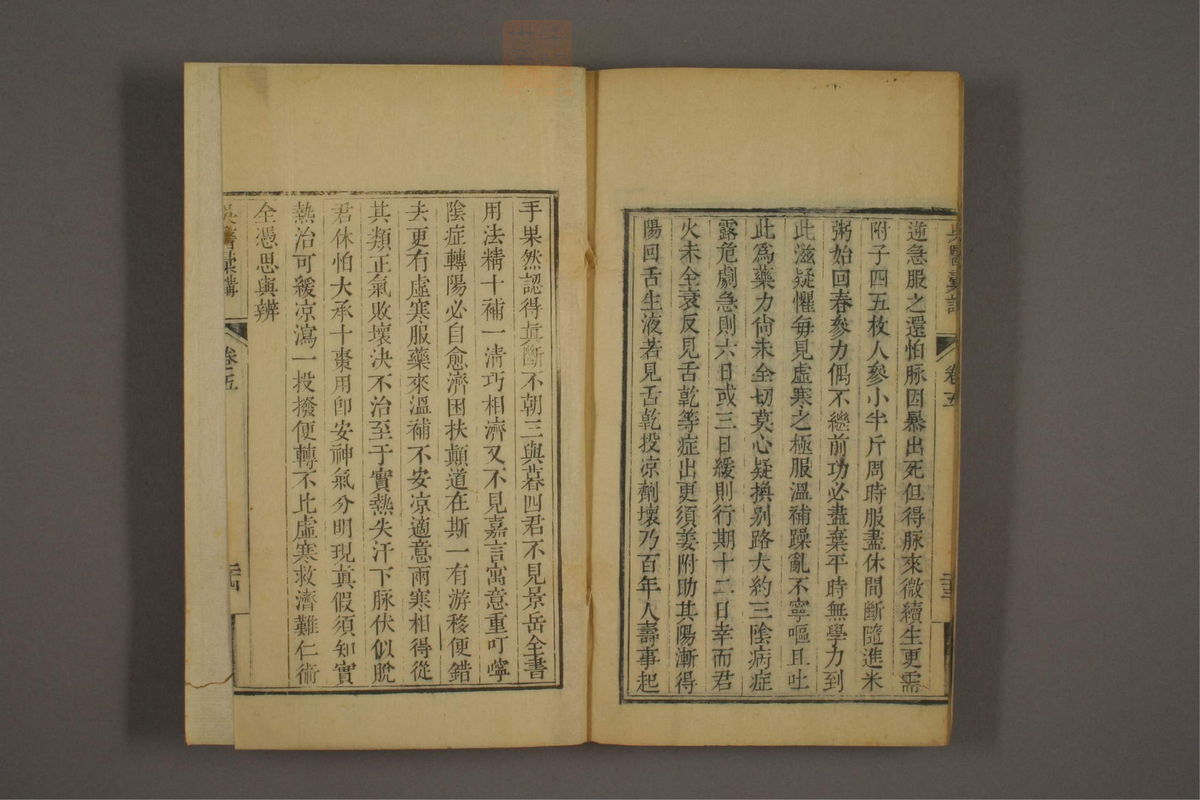 吳醫彙講 卷五 二十三
逆急服之還怕脉因暴出死但得脉來微續生更需
附子四五枚人參小半斤周時服盡休間斷隨進米
粥始回春參力偶不繼前功必盡棄平時無學力到
此滋疑懼每見虛寒之極服溫補躁亂不寧嘔且吐
此爲藥力尙未全切莫心疑換别路大約三陰病症
露危劇急則六日或三日緩則行期十二日幸而君
火未全衰反見舌乾等症出更須姜附助其陽漸得
陽回舌生液若見舌乾投凉劑壞乃百年人壽事起
手果然認得眞斷不朝三與暮四君不見景岳全書
用法精十補一淸巧相濟又不見嘉言寓意重叮嚀
陰症轉陽必自愈濟困扶顚道在斯一有游移便錯
去更有虛寒服藥來溫補不安凉適意兩寒相得從
其類正氣敗壞決不治至于實熱失汗下脉伏似脫
君休怕大承十棗用卽安神氣分明現眞假須知實
熱治可緩凉瀉一投撥便轉不比虛寒救濟難仁術
全憑思與辨
吳醫彙講 卷五 二十四